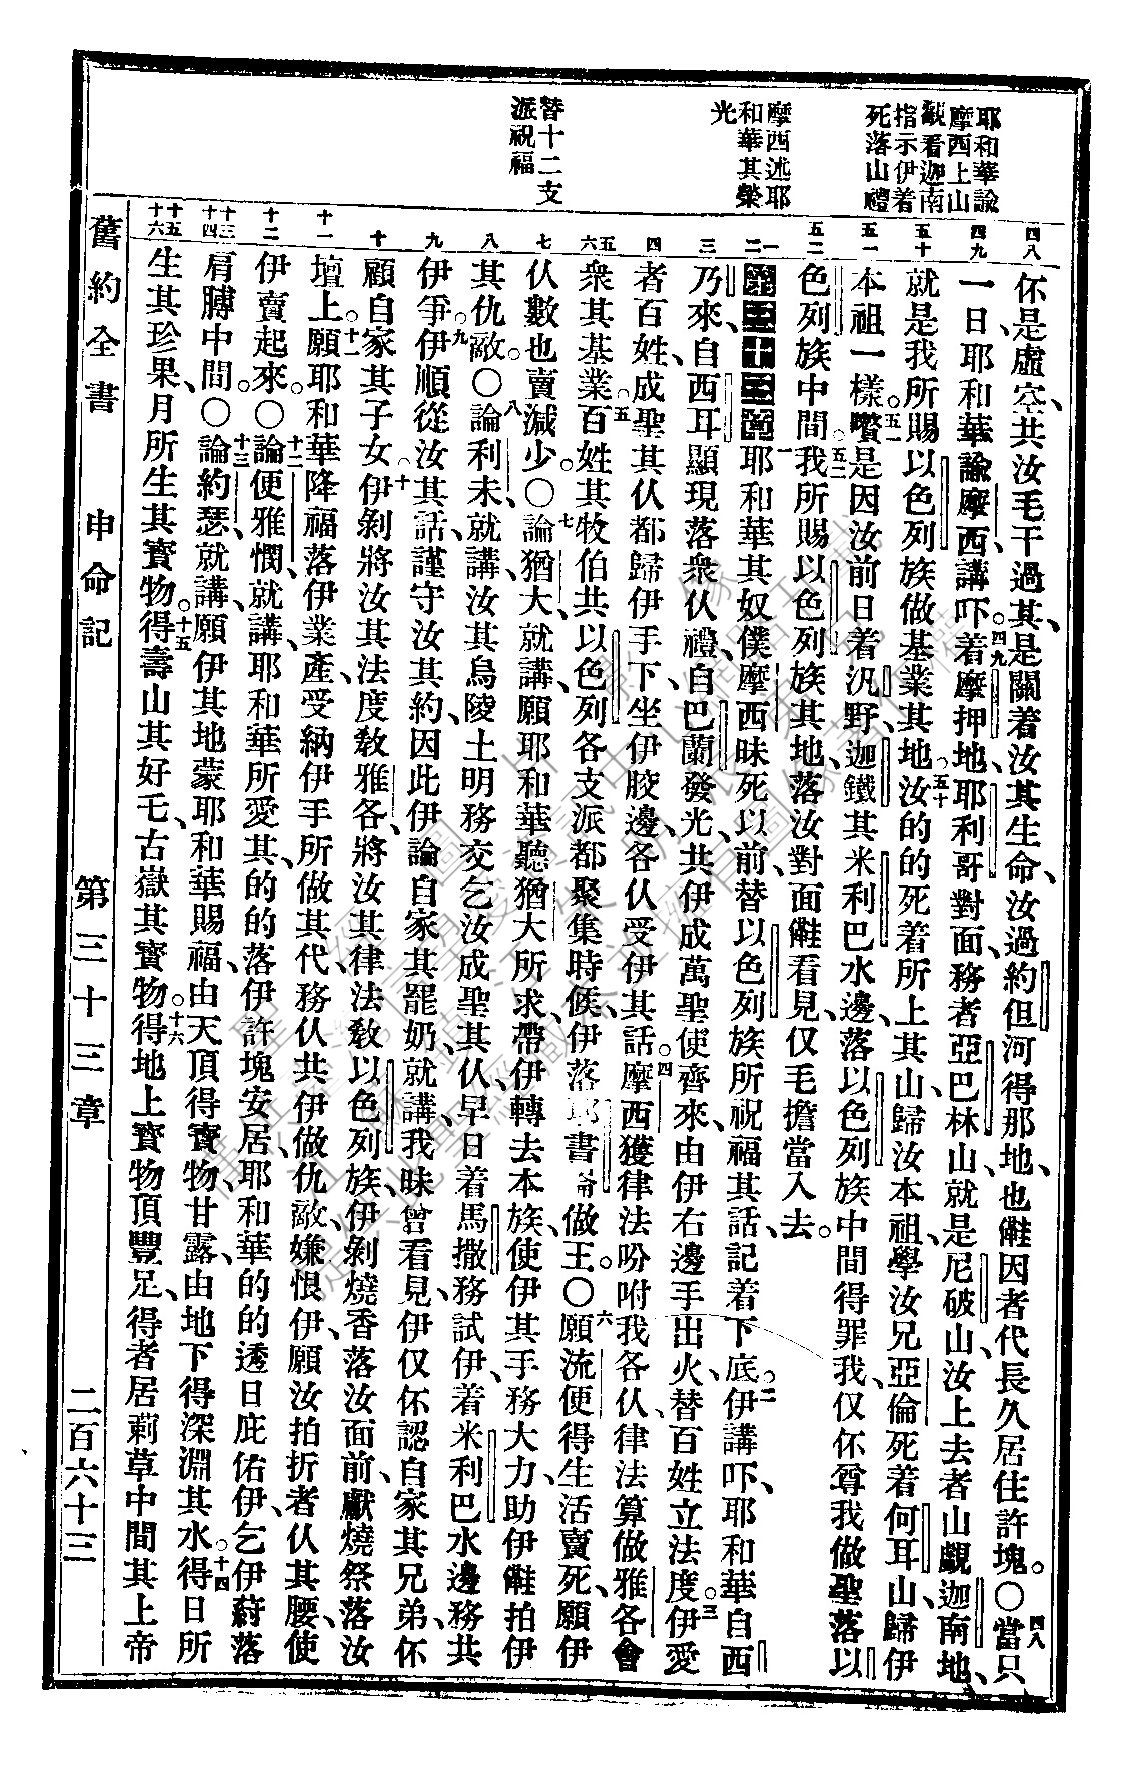 耶和華諭
摩西上山
觀看迦南
指示伊着
死落山禮
摩西述耶
和華其榮
光
替十二支
派祝福
四八
四九
五十
五一
五二
一
二
三
四
五
六
七
八
九
十
十一
十二
十三
十四
十五
十六
伓是虛空共汝毛干過其、是關着汝其生命、汝過約但河得那地、也㒰因者代長久居住許塊。○四八當只
一日耶和華諭摩西講吓、四九着摩押地、耶利哥對面、務者亞巴林山、就是尼破山、汝上去者山觑迦南地、
就是我所賜以色列族做基業其地、五十汝的的死着所上其山、歸汝本祖、學汝兄亞倫死着何耳山歸伊
本祖一樣。五一嚽是因汝前日着汛野、迦鐵其米利巴水邊、落以色列族中間得罪我、仅伓尊我做聖落以
色列族中間。五二我所賜以色列族其地、落汝對面㒰看見、仅毛擔當入去。
第三十三章一耶和華其奴僕摩西昧死以前、替以色列族所祝福其話、記着下底。二伊講吓、耶和華自西
乃來、自西耳顯現落衆仈禮、自巴蘭發光、共伊成萬聖使齊來、由伊右邊手出火、替百姓立法度。三伊愛
者百姓、成聖其仈都歸伊手下、坐伊胶邊、各仈受伊其話。四摩西獲律法吩咐我各仈、律法算做雅各會
衆其基業。五百姓其牧伯共以色列各支派都聚集時候、伊落耶書崙做王。○六願流便得生活賣死、願伊
仈數也賣減少。○七論猶大、就講、願耶和華聽猶大所求、帶伊轉去本族、使伊其手務大力、助伊㒰拍伊
其仇敵。○八論利未、就講、汝其烏陵土明務交乞汝成聖其仈、早日着馬撒務試伊、着米利巴水邊務共
伊爭。九伊順從汝其話、謹守汝其約、因此伊論自家其罷奶、就講、我昧曾看見、伊仅伓認自家其兄弟、伓
顧自家其子女。十伊剝將汝其法度敎雅各、將汝其律法敎以色列族、伊剝燒香落汝面前、獻燒祭落汝
壇上。十一願耶和華降福落伊業產、受納伊手所做其代、務仈共伊做仇敵、嫌恨伊、願汝拍折者仈其腰、使
伊賣起來。○十二論便雅憫、就講、耶和華所愛其、的的落伊許塊安居、耶和華的的透日庇佑伊、乞伊䕃落
肩膊中間。○十三論約瑟、就講、願伊其地蒙耶和華賜福、由天頂得寳物、甘露、由地下得深淵其水。十四得日所
生其珍果、月所生其寳物。十五得壽山其好乇、古嶽其寳物。十六得地上寳物頂豐足、得者居莿草中間其上帝
舊約全書　申命記　第三十三章　二百六十三